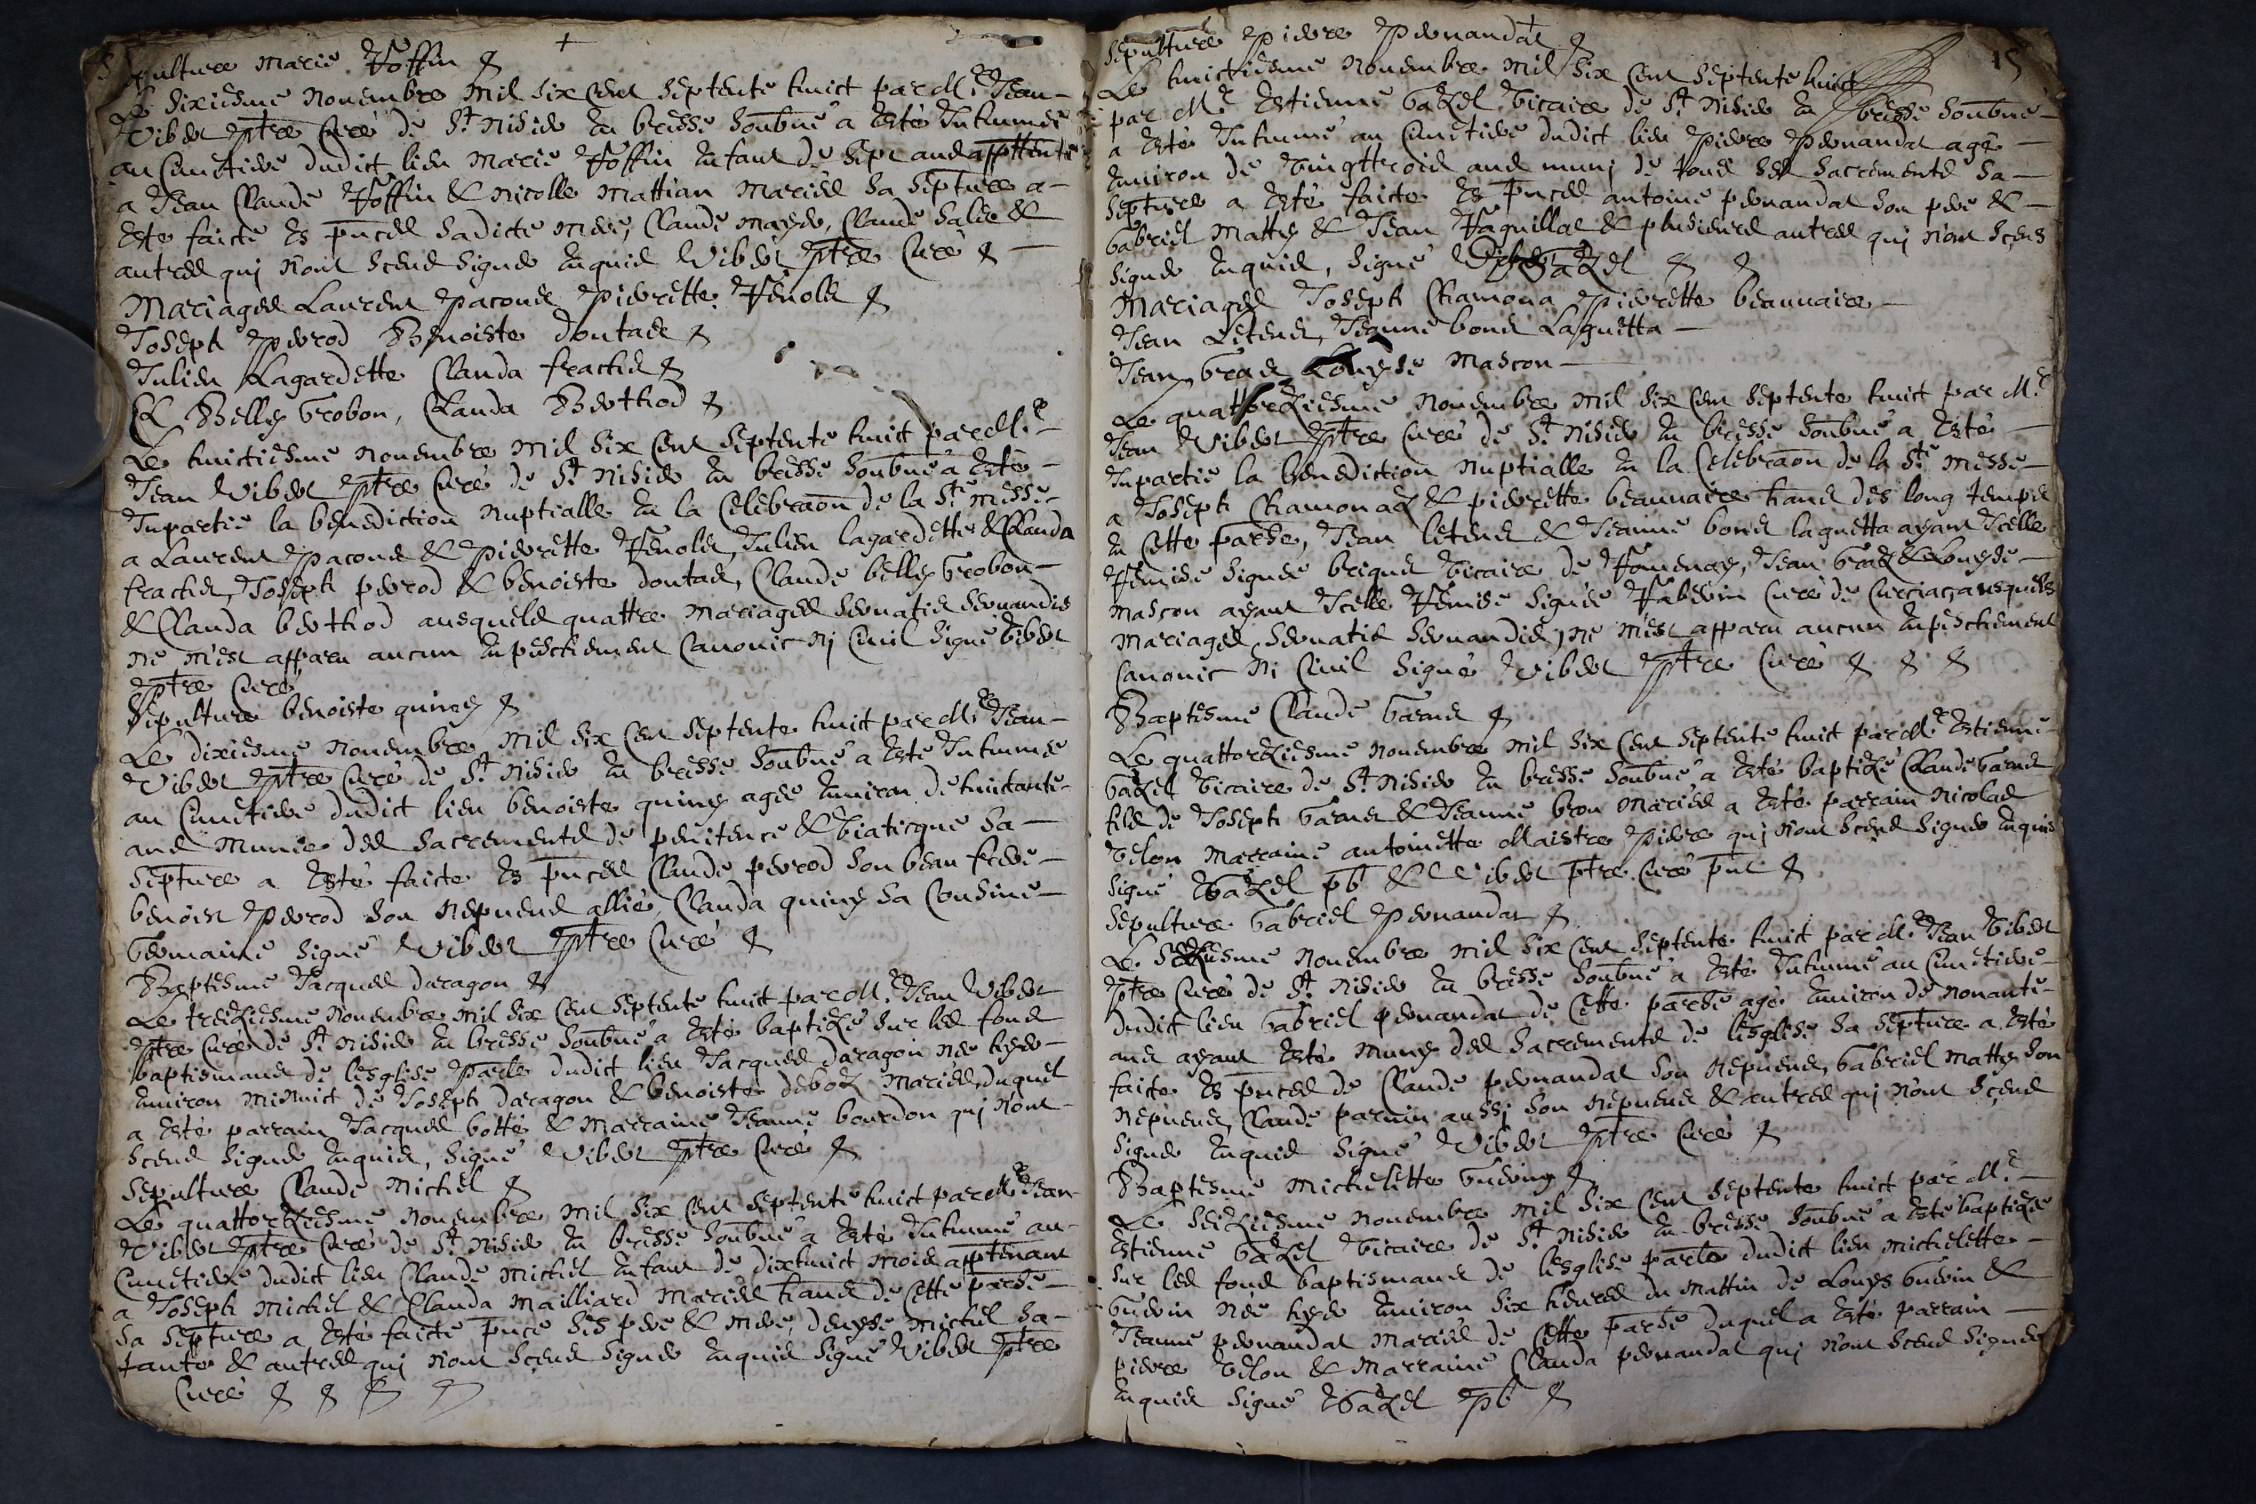 Sepulture Marie Roffin
Le Sixiesme Novembre mil six cent septente huict par Mre Jean
Vibert ptre Curé de St Nisier en bresse soubné a esté Inhumée
au Cimetiere dudict lieu Marie Roffin enfant de sept ans appttente
a Jean Claude Roffin & Nicolle Mattian Mariés sa septure a
este faicte Es pnces sadicte mere, Claude Mayer, Claude Salie &
autres qui n'ont sceus signer enquis Vibert ptre Curé
Mariages Laurent Paconet Pierrette Renolet
Joseph Perrod Benoiste Dontaet
Julien Lagardette Clauda frachet
Cl Belly Grobon, Clauda Berthod
Le huictiesme novembre mil six cent septente huict par Mre
Jean Vibert ptre Curé de St Nisier en bresse soubné a esté
Inpartie la benediction nuptialle en la celebraon de la Ste Messe
a Laurent Paconet & Pierrette Renolet, Julien lagardette & Clauda
frachet, Joseph perrod & benoiste dontaet, Claude belly Grobon
& Clauda berthod ausquels quattre mariages servatis servandis
ne m'est apparu aucun enpeschement Canonic ni Civil signé Vibert
ptre Curé
Sepulture benoiste quiney
Le dixiesme novembre mil six cent septente huict par Mre Jean
Vibert ptre Curé de St Nisier en bresse soubné a esté Inhumée
au Cimetiere dudict lieu benoiste quiney agée environ de huictante
ans munie des sacrements de penitence & Viaticque sa
septure a esté faicte Es pnces Claude perrod son beau frere
benoist Perrod son nepveu allié, Clauda quiney sa Cousine
Germaine signé Vibert ptre Curé
Baptesme Jacques daragon
Le treiziesme novembre mil six cent septente huict par Mre Jean Vibert
ptre Curé de St Nisier en bresse soubné a esté baptizé sur les fond
baptismaux de lesglise parle dudict lieu Jacques daragon né hyer
environ minuict de Joseph daragon & benoiste deboz mariés, duquel
a esté parrain Jacques botté & marraine Jeanne bourdon qui n'ont
sceus signer enquis, signé Vibert ptre Curé
Sepulture Claude Michel
Le quattorziesme novembre mil six cent septente huict par Mre Jean
Vibert ptre Curé de St Nisier en bresse soubné a esté Inhumé au
Cimetiere dudict lieu Claude michel enfant de dixhuict mois apptenant
a Joseph michel & Clauda mailliard mariés hans de cette parse
sa septure a esté faicte pnce ses pere & mere, denyse michel sa
tante & autres qui n'ont sceus signer enquis signé Vibert ptre
Curé
15
Sepulture Pierre Pernandat
Le huictiesme novembre mil six cent septente huict
par Mre Estienne Gazel Vicaire de St Nisier en bresse soubné
a esté Inhumé au Cimetiere dudict lieu Pierre Pernandat agé
environ de vingttrois ans muni de tous ses sacrements sa
septure a esté faicte Es pnces antoine pernandat son pere &
Gabriel Matty & Jean Vaquillat & plusieurs autres qui n'ont sceus
signer enquis, signé Gazel
Mariages Joseph Chamona Pierrette beauvaire
Jean Letenet, Jeanne bonet Laquetta
Jean Graz Louyse Mascon
Le quattorziesme novembre mil six cent septente huict par Mre
Jean Vibert ptre Curé de St Nisier en bresse soubné a esté
Inpartie la benediction nuptialle en la Celebraon de la Ste Messe
a Joseph Chamonaz & pierrette beauvaire hans des long temps
en cette parse, Jean letenet & Jeanne bonet laquetta ayant Icelle
Remise signée brigue Vicaire de Romenay, Jean Graz & Louyse
Mascon ayant Icelle Remise signée Rabevin Curé de Curciat ausquels
mariages servatis servandis, ne m'est apparu aucun enpeschement
Canonic ni Civil signé Vibert ptre Curé
Baptesme Claude Garnet
Le quattorziesme novembre mil six cent septente huict par Mre Estienne
Gazel Vicaire de St Nisier en bresse soubné a esté baptizé Claude Garnet
filz de Joseph Garnet & Jeanne bron mariés a esté parrain Nicolas
Velon marraine antoinette Maistre Pierre qui n'ont sceus signer enquis
signé EGazel pb & Vibert ptre Curé pnt
Sepulture Gabriel Pernandat
Le seiziesme novembre mil six cent septente huict par Mre Jean Vibert
ptre Curé de St Nisier en bresse soubné a esté Inhumé au Cimetiere
dudict lieu Gabriel pernandat de cette parse agé environ de nonante
ans ayant esté muny des sacrements de lesglise sa septure a esté
faicte Es pnces de Claude pernandat son nepveu, Gabriel matty son
nepveu, Claude parvin aussi son nepveu & autres qui n'ont sceus
signer enquis signé Vibert ptre Curé
Baptesme Michelette Guering
Le seiziesme novembre mil six cent septente huict par Mre
Estienne Gazel Vicaire de St Nisier en bresse soubné a esté baptizée
sur les fond baptismaux de lesglise parle dudict lieu michelette
Guerin née hyer environ six heures du mattin de Louys Guerin &
Jeanne pernandat mariés de cette parse duquel a esté parrain
pierre Velon & marraine Clauda pernandat qui n'ont sceus signer
enquis signé EGazel pb